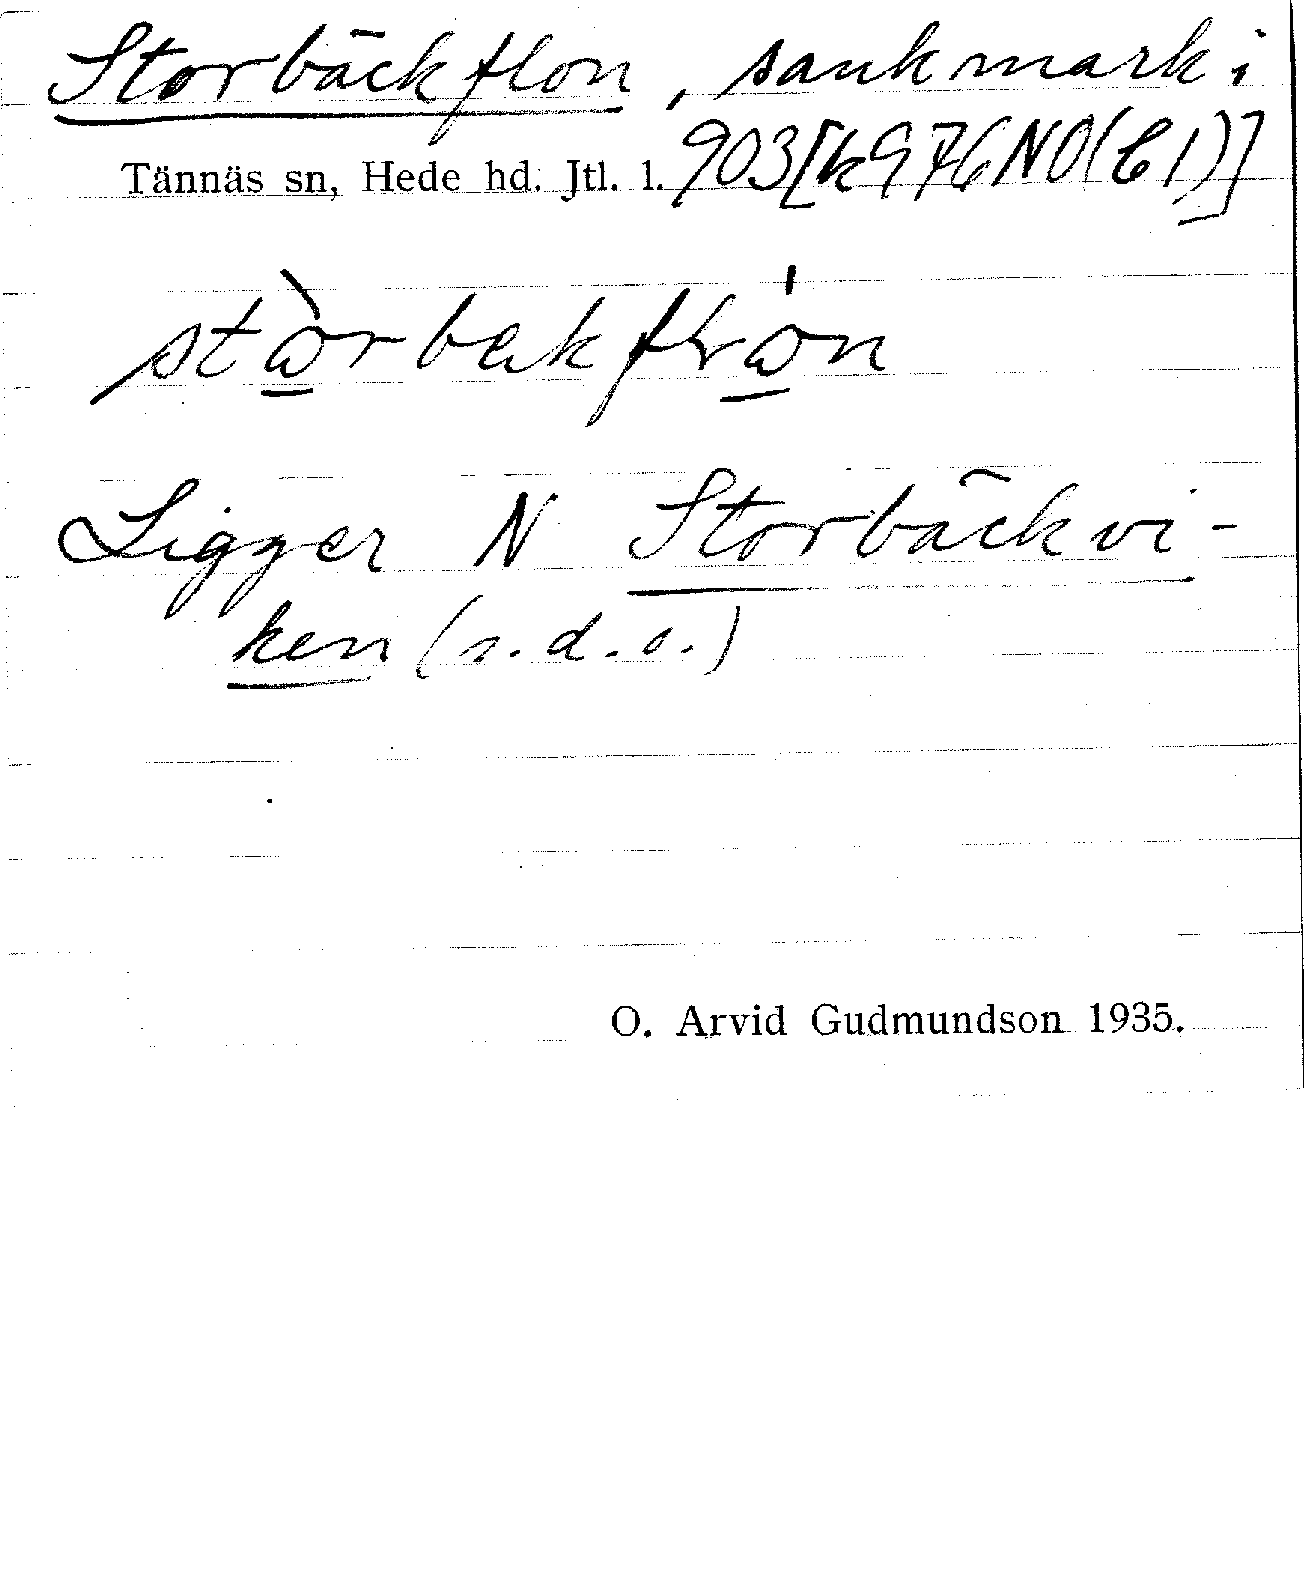 Storbäckflon, sankmark i
Tännäs sn, Hede hd. Jtl. l. 903[k976NO(C1)]
stò̱rbekflró̱n
Ligger N Storbäckvi-
ken (s.d.o.)
O. Arvid Gudmundson 1935.